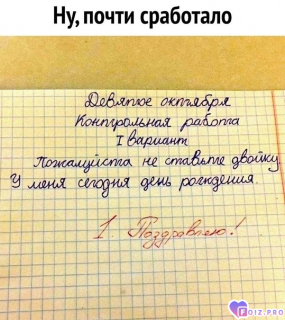 Ну, почти сработало
Девятое октября
Контрольная работа
I Вариант
Пожалуйста не ставьте двойку
У меня сегодня день рождения.
1. Поздравляю!
FOIZ.PRO